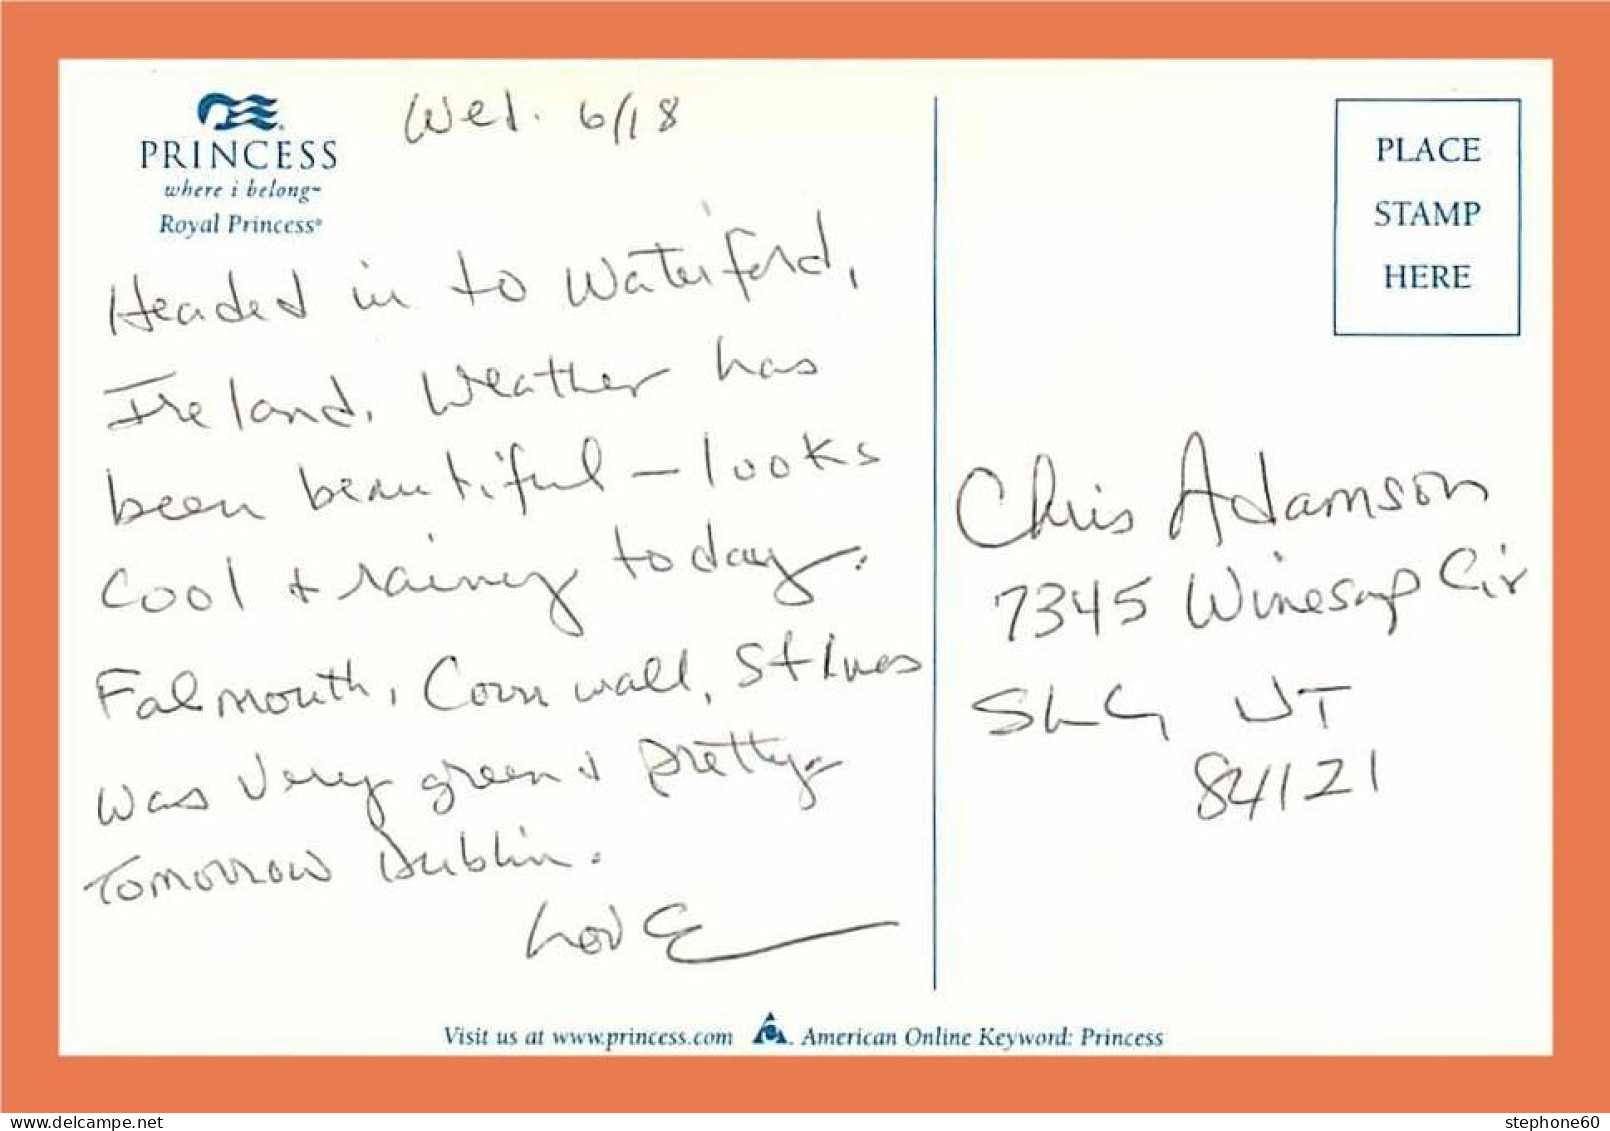 PRINCESS
where i belong~
Royal Princess®
Wed. 6/18
Headed in to Waterford,
Ireland. Weather has
been beautiful – looks
cool + rainy today.
Falmouth, Cornwall, St Ives
was very green & pretty.
Tomorrow Dublin.
Love
PLACE
STAMP
HERE
Chris Adamson
7345 Winesap Cir
SLC, UT
84121
Visit us at www.princess.com
American Online Keyword: Princess
delcampe.net
stephone60